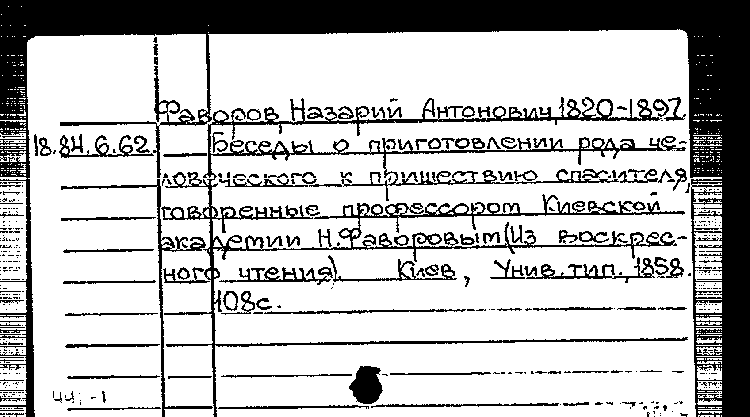 Фаворов, Назарий Антонович, 1820-1897.
18.84.6.62. Беседы о приготовлении рода че-
ловеческого к пришествию спасителя,
говоренные профессором Киевской
академии Н.Фаворовым (Из воскрес-
ного чтения). Киев, Унив. тип., 1858.
108с.